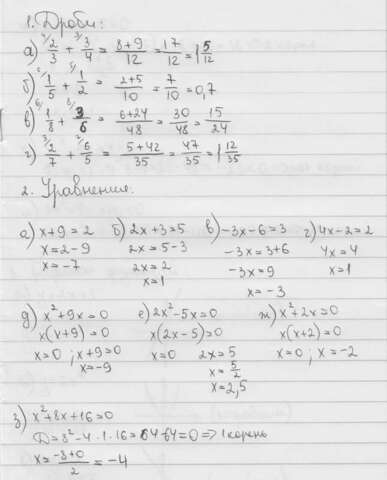 1. Дроби:
а) 4/ 2/3 + 3/ 3/4 = (8+9)/12 = 17/12 = 1 5/12
б) 2/ 1/5 + 5/ 1/2 = (2+5)/10 = 7/10 = 0,7
в) 6/ 1/8 + 8/ 3/6 = (6+24)/48 = 30/48 = 15/24
г) 2/7 + 6/5 = (5+42)/35 = 47/35 = 1 12/35
2. Уравнения.
а) x+9=2 б) 2x+3=5 в) -3x-6=3 г) 4x-2=2
x=2-9 2x=5-3 -3x=3+6 4x=4
x=-7 2x=2 -3x=9 x=1
x=1 x=-3
д) x²+9x=0 е) 2x²-5x=0 ж) x²+2x=0
x(x+9)=0 x(2x-5)=0 x(x+2)=0
x=0; x+9=0 x=0 2x=5 x=0; x=-2
x=-9 x=5/2
x=2,5
з) x²+8x+16=0
D=8²-4·1·16=64-64=0=>1 корень
x=(-8+0)/2=-4